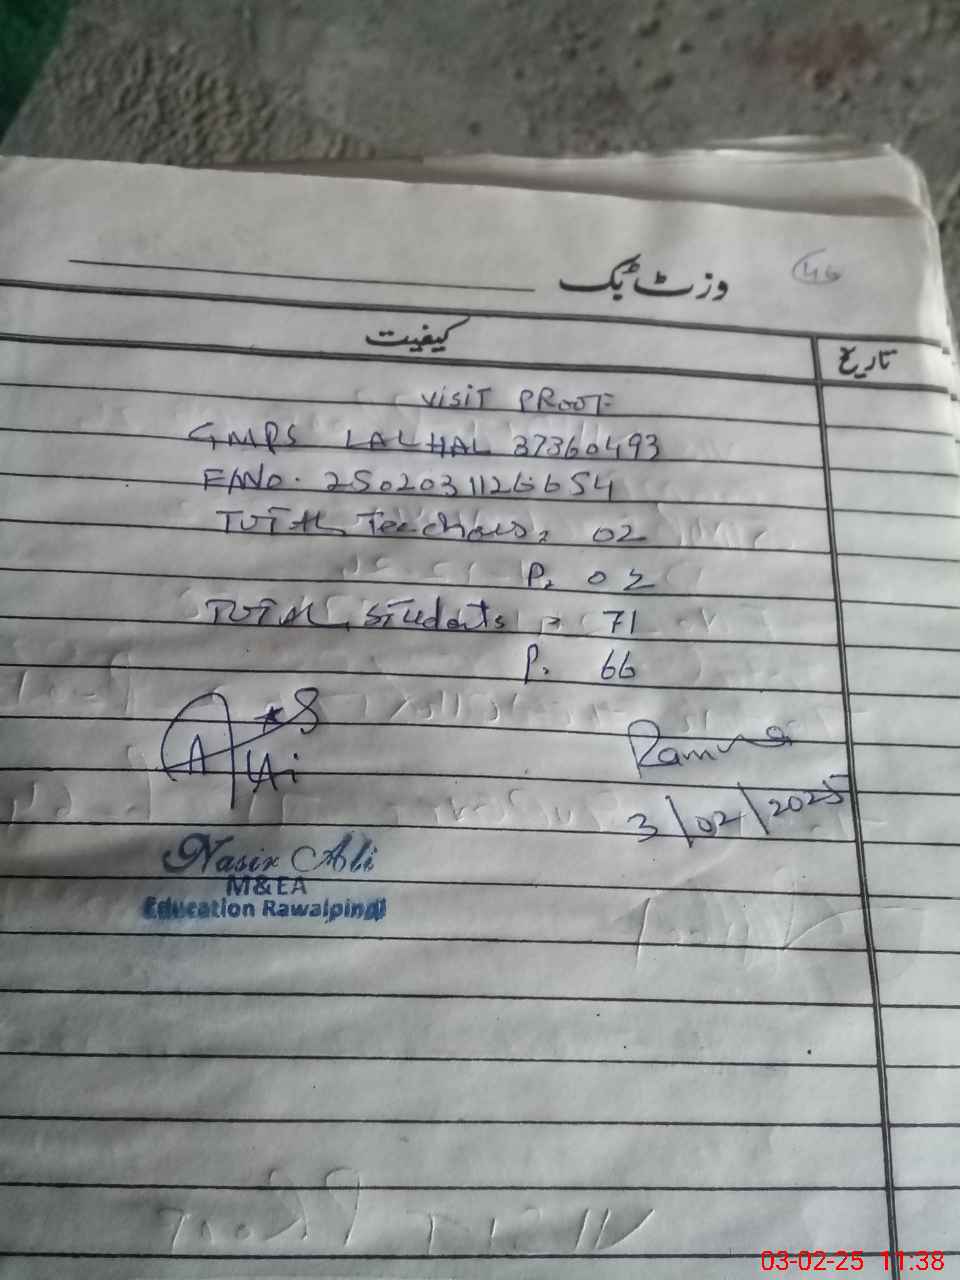 وزٹ بک
46
کیفیت
تاریخ
VISIT PROOF
GMPS LALHAL 37360493
EANO. 25020311266654
TOTAL Teachers: 02
P. 02
TOTAL Students = 71
P. 66
3/02/2025
Nasir Ali
M&EA
Education Rawalpindi
VISIT PROOF
03-02-25 11:38